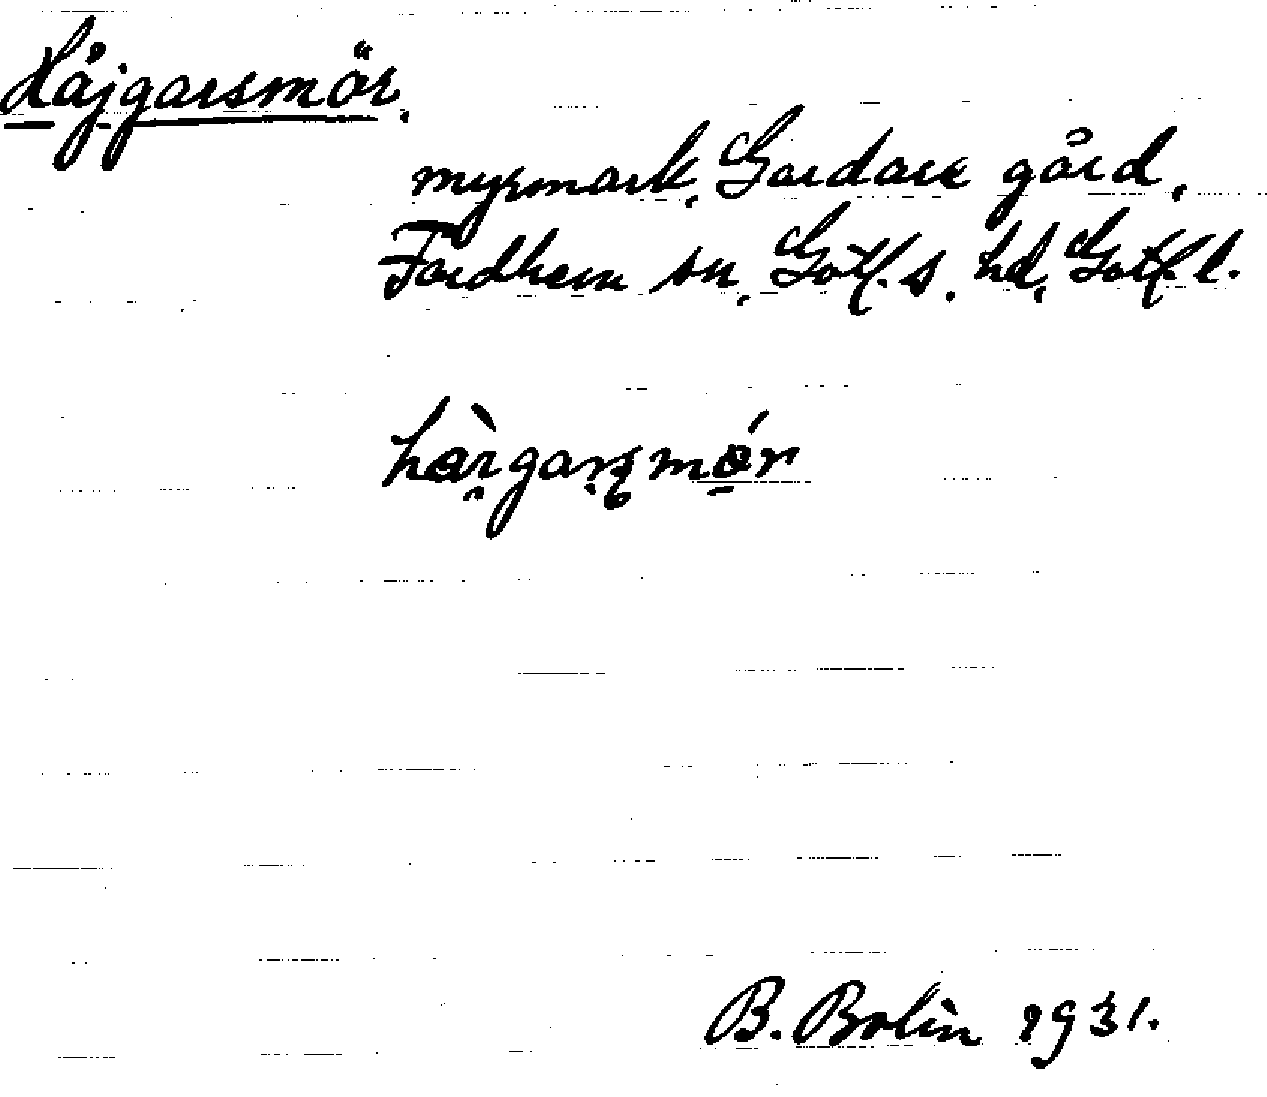 Håjgarsmör.
myrmark, Gardare gård,
Fardhem sn, Gotl. s. hd, Gotl. l.
B. Bolin 1931.